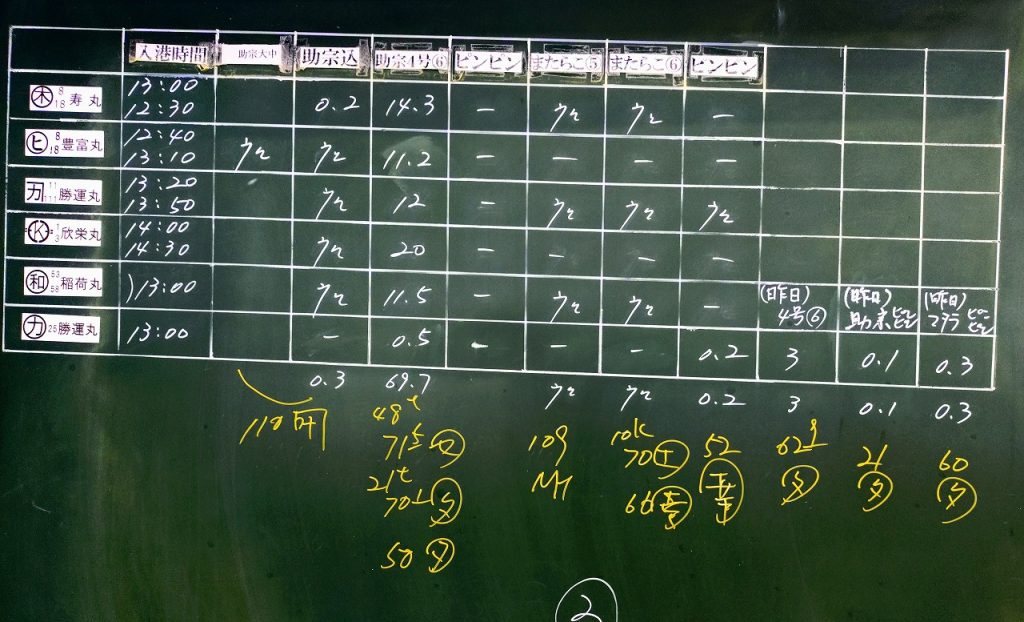 入港時間 助宗大中 助宗込 助宗4号⑥ ピンピン またらこ⑤ またらこ⑥ ピンピン
木 8 18 寿丸 13:00 12:30 0.2 14.3 － ウn ウn －
ヒ 8 18 豊富丸 12:40 13:10 ウn ウn 11.2 － － － －
カ 11 111 勝運丸 13:20 13:50 ウn 12 － ウn ウn ウn
K 欣栄丸 14:00 14:30 ウn 20 － － － －
和 63 58 稲荷丸 13:00 ウn 11.5 － ウn ウn － (昨日) 4号⑥ (昨日) 助宗 ピンピン (昨日) マダラ ピンピン
カ 25 勝運丸 13:00 － 0.5 － － － 0.2 3 0.1 0.3
0.3 69.7 ウn ウn 0.2 3 0.1 0.3
48t
110 109 10k 52 62 21 60
71 70
21t
70
50
2